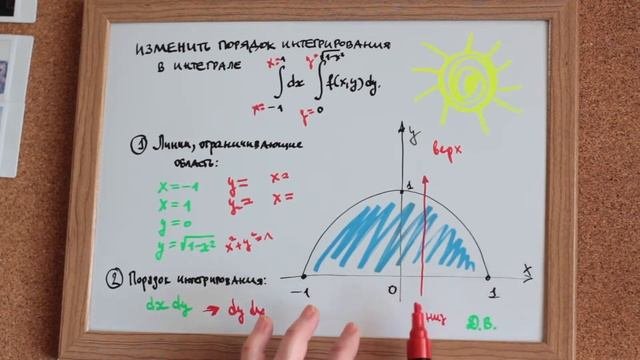 ИЗМЕНИТЬ ПОРЯДОК ИНТЕГРИРОВАНИЯ
В ИНТЕГРАЛЕ
x=1 y=√1-x²
∫dx ∫f(x,y)dy.
x=-1 y=0
① Линии, ограничивающие
область:
x=-1 y= x=
x=1 y= x=
y=0
y=√1-x² x²+y²=1
② Порядок интегрирования:
dx dy → dy dx
y
верх
1
x
-1 0 1
низ
Д.В.